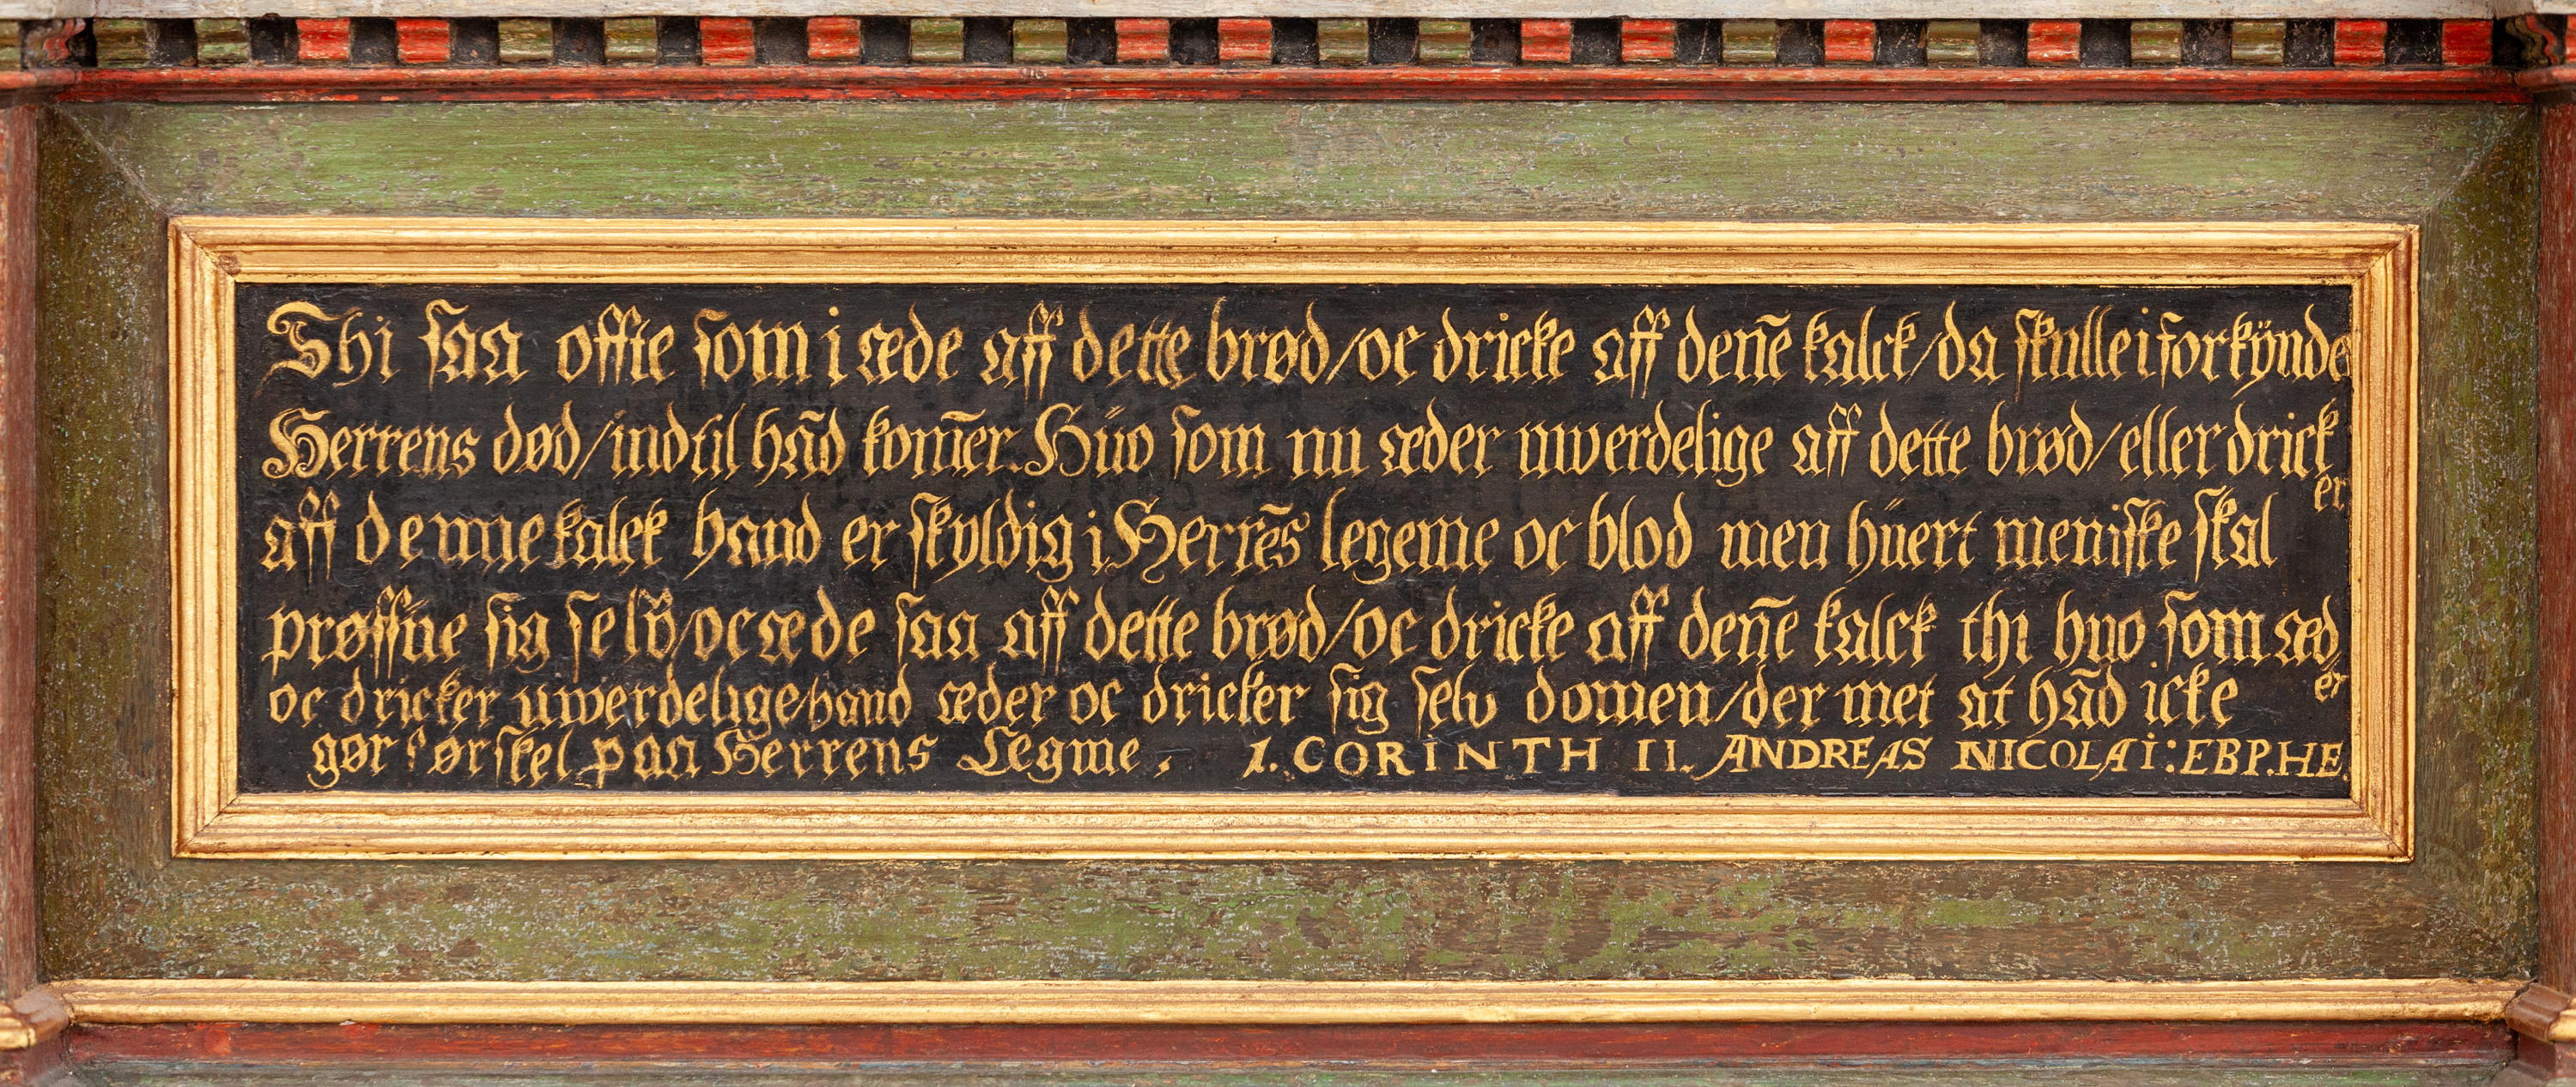 Thi saa offte som i æde aff dette brød/oc dricke aff deñe kalck/da skulle i forkÿnde
Herrens død/indtil hãd kom̃er. Hüo som nu æder uwerdelige aff dette brød/eller dricker
aff denne kalck hand er skyldig i Herrẽs legeme oc blod men hüert menniske skal
prøffue sig selff/oc æde saa aff dette brød/oc dricke aff deñe kalck thi huo som æder
oc dricker uwerdelige hand æder oc dricker sig selv domen/der met at hãd icke
gør forskel paa Herrens Legme. 1. CORINTH II. ANDREAS NICOLAI: EBP.HE.